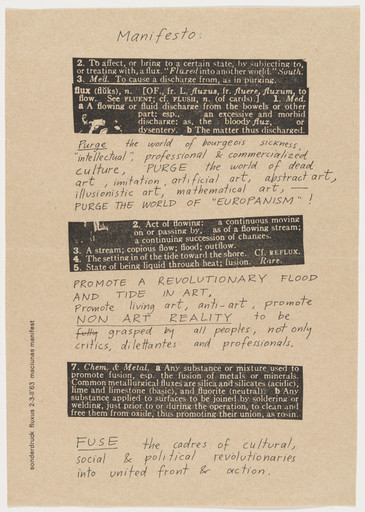 Manifesto:
2. To affect, or bring to a certain state, by subjecting to,
or treating with, a flux. "Fluxed into another world." South.
3. Med. To cause a discharge from, as in purging.
flux (flŭks), n. [OF., fr. L. fluxus, fr. fluere, fluxum, to
flow. See FLUENT; cf. FLUSH, n. (of cards).] 1. Med.
a A flowing or fluid discharge from the bowels or other
part; esp., an excessive and morbid
discharge: as, the bloody flux, or
dysentery. b The matter thus discharged.
Purge the world of bourgeois sickness,
"intellectual", professional & commercialized
culture, PURGE the world of dead
art, imitation, artificial art, abstract art,
illusionistic art, mathematical art, —
PURGE THE WORLD OF "EUROPANISM"!
2. Act of flowing: a continuous moving
on or passing by, as of a flowing stream;
a continuing succession of changes.
3. A stream; copious flow; flood; outflow.
4. The setting in of the tide toward the shore. Cf. REFLUX.
5. State of being liquid through heat; fusion. Rare.
PROMOTE A REVOLUTIONARY FLOOD
AND TIDE IN ART,
Promote living art, anti-art, promote
NON ART REALITY to be
fully grasped by all peoples, not only
critics, dilettantes and professionals.
7. Chem. & Metal. a Any substance or mixture used to
promote fusion, esp. the fusion of metals or minerals.
Common metallurgical fluxes are silica and silicates (acidic),
lime and limestone (basic), and fluorite (neutral). b Any
substance applied to surfaces to be joined by soldering or
welding, just prior to or during the operation, to clean and
free them from oxide, thus promoting their union, as rosin.
FUSE the cadres of cultural,
social & political revolutionaries
into united front & action.
sonderdruck fluxus 2-3-II'63 maciunas manifest